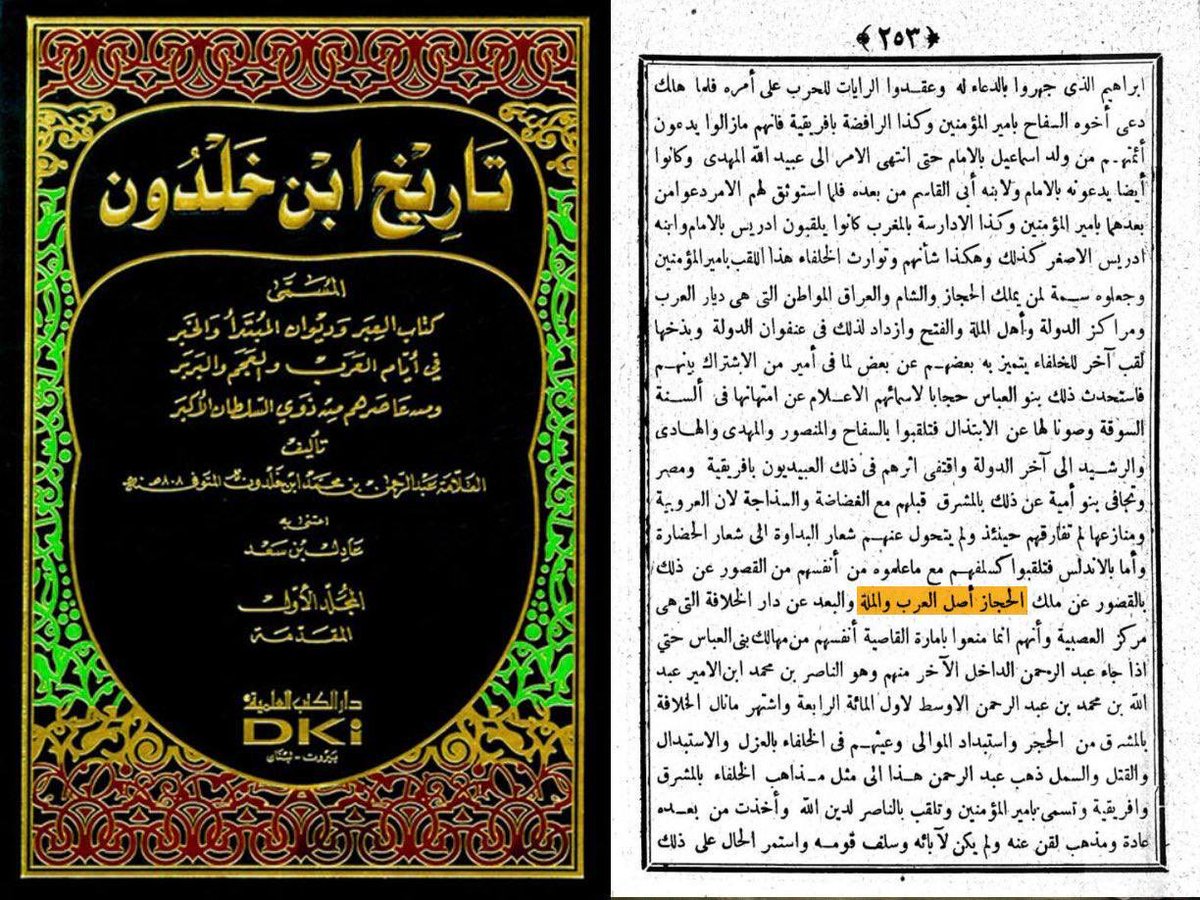 تَارِيْخ ابْنِ خَلْدُون
المُسَمَّى
كتاب العِبَر وَديوان المُبْتَدَأ وَالخَبَر
في أيّام العَرَب والعَجَم والبَربَر
ومن عَاصَرهم من ذَوي السّلطان الأكبَر
تأليف
العَلّامَة عَبْد الرّحمٰن بن محَمَّد ابن خَلْدُون المتَوفى ٨٠٨هـ
اعتنى به
عَادِل بْن سَعد
المُجَلّد الأوّل
المقَدّمَة
دار الكتب العلمية
DKi
بَيْرُوت - لبْنَان
﴿٢٥٣﴾
ابراهيم الذى جهروا بالدعاء له وعقدوا الرايات للحرب على أمره فلما هلك
دعى أخوه السفاح بامير المؤمنين وكذا الرافضة بافريقية فانهم مازالوا يدعون
أئمتهم من ولد اسماعيل بالامام حتى انتهى الامر الى عبيد الله المهدى وكانوا
أيضا يدعونه بالامام ولابنه أبى القاسم من بعده فلما استوثق لهم الامر دعوا من
بعدهما بامير المؤمنين وكذا الادارسة بالمغرب كانوا يلقبون ادريس بالامام وابنه
ادريس الاصغر كذلك وهكذا شأنهم وتوارث الخلفاء هذا اللقب بامير المؤمنين
وجعلوه سمة لمن يملك الحجاز والشام والعراق المواطن التى هى ديار العرب
ومراكز الدولة وأهل الملة والفتح وازداد لذلك فى عنفوان الدولة وبذخها
لقب آخر للخلفاء يتميز به بعضهم عن بعض لما فى أمير من الاشتراك بينهم
فاستحدث ذلك بنو العباس حجابا لاسمائهم الاعلام عن امتهانها فى ألسنة
السوقة وصونا لها عن الابتذال فتلقبوا بالسفاح والمنصور والمهدى والهادى
والرشيد الى آخر الدولة واقتفى اثرهم فى ذلك العبيديون بافريقية ومصر
وتجافى بنو أمية عن ذلك بالمشرق قبلهم مع الغضاضة والسذاجة لان العروبية
ومنازعها لم تفارقهم حينئذ ولم يتحول عنهم شعار البداوة الى شعار الحضارة
وأما بالاندلس فتلقبوا كسلفهم مع ماعلموه من أنفسهم من القصور عن ذلك
بالقصور عن ملك الحجاز أصل العرب والملة والبعد عن دار الخلافة التى هى
مركز العصبية وأنهم انما منعوا بامارة القاصية أنفسهم من مهالك بنى العباس حتي
اذا جاء عبد الرحمن الداخل الآخر منهم وهو الناصر بن محمد ابن الامير عبد
الله بن محمد بن عبد الرحمن الاوسط لاول المائة الرابعة واشتهر مانال الخلافة
بالمشرق من الحجر واستبداد الموالى وعيثهم فى الخلفاء بالعزل والاستبدال
والقتل والسمل ذهب عبد الرحمن هذا الى مثل مذاهب الخلفاء بالمشرق
وافريقية وتسمى بامير المؤمنين وتلقب بالناصر لدين الله وأخذت من بعده
عادة ومذهب لقن عنه ولم يكن لآبائه وسلف قومه واستمر الحال على ذلك